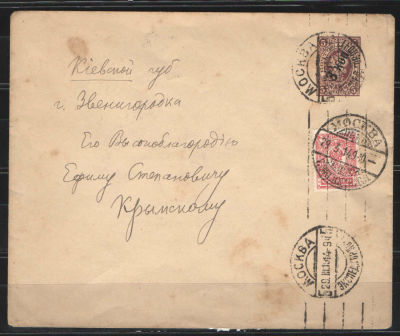 Кіевской губ
г. Звенигородка
Его Высокоблагородію
Ефиму Степановичу
Крымскому
МОСКВА
МОСКВА
МОСКВА